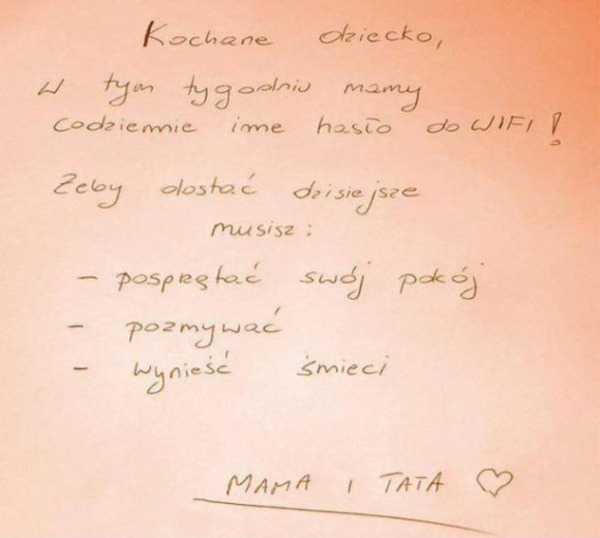 Kochane dziecko,
W tym tygodniu mamy
codziennie ime hasło do WIFI!
Żeby dostać dzisiejsze
musisz:
- posprzątać swój pokój
- pozmywać
- wynieść śmieci
MAMA I TATA ♡